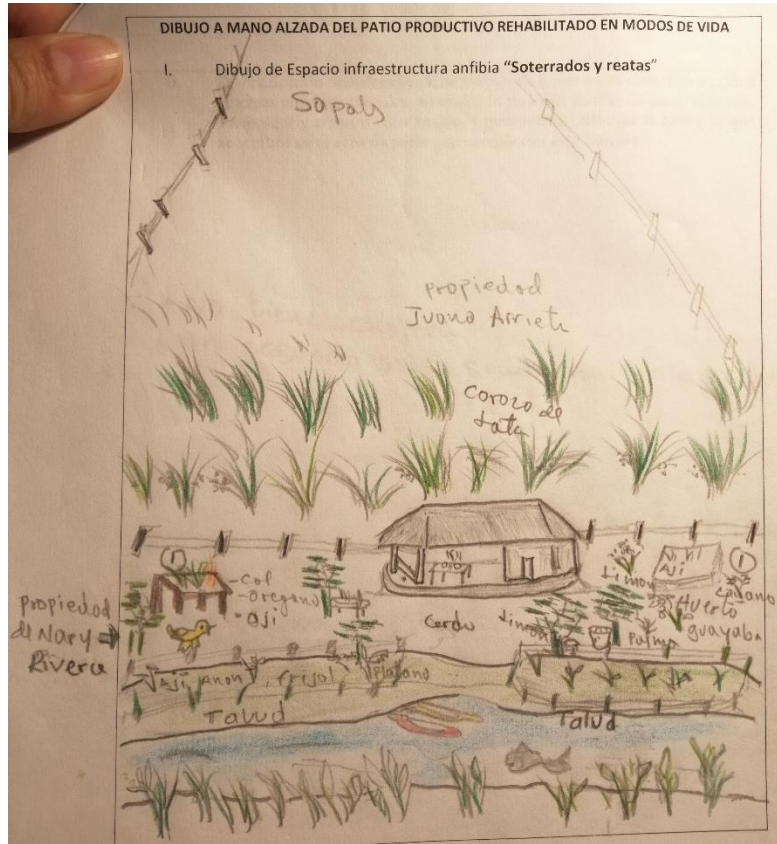 DIBUJO A MANO ALZADA DEL PATIO PRODUCTIVO REHABILITADO EN MODOS DE VIDA
I. Dibujo de Espacio infraestructura anfibia “Soterrados y reatas”
Sapals
propiedad
Juana Arriet
Corozo de
Lata
①
-Col
-oregano
-aji
Propiedad
de Nary
Rivera
Cerdo
Limon
①
Limon
Huerto
guayaba
Palma
Aji, anon, frijol, platano
Talud
Talud